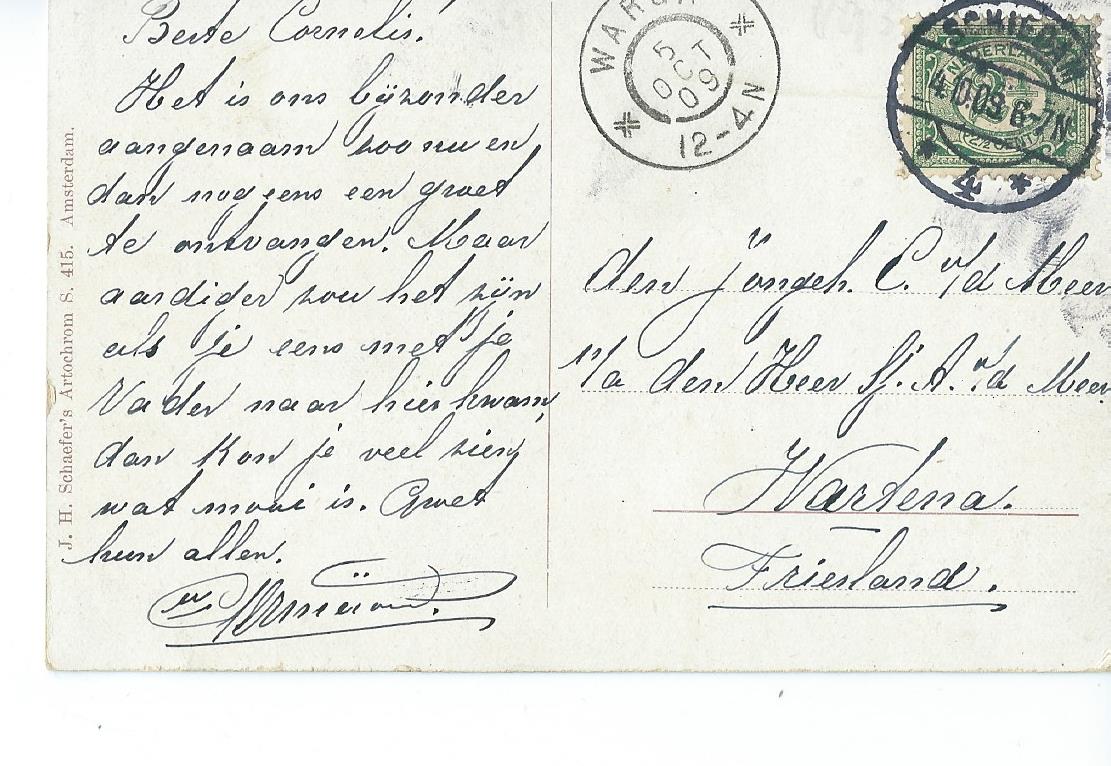 Beste Cornelis.
Het is ons bijzonder
aangenaam zoo nu en
dan nog eens een groet
te ontvangen. Maar
aardiger zou het zijn
als je eens met je
Vader naar hier kwam,
dan kon je veel zien,
wat mooi is. Groet
hun allen.
J. H. Schaefer's Artochrom S. 415. Amsterdam.
WARGA
5 OCT 09
12-4N
SCHIEDAM
4.10.09.6-7N
4
NEDERLAND
2½
(2½ CENT)
den Jongeh. C. v/d Meer
p/a den Heer Sj. A. v/d Meer
Wartena.
Friesland.